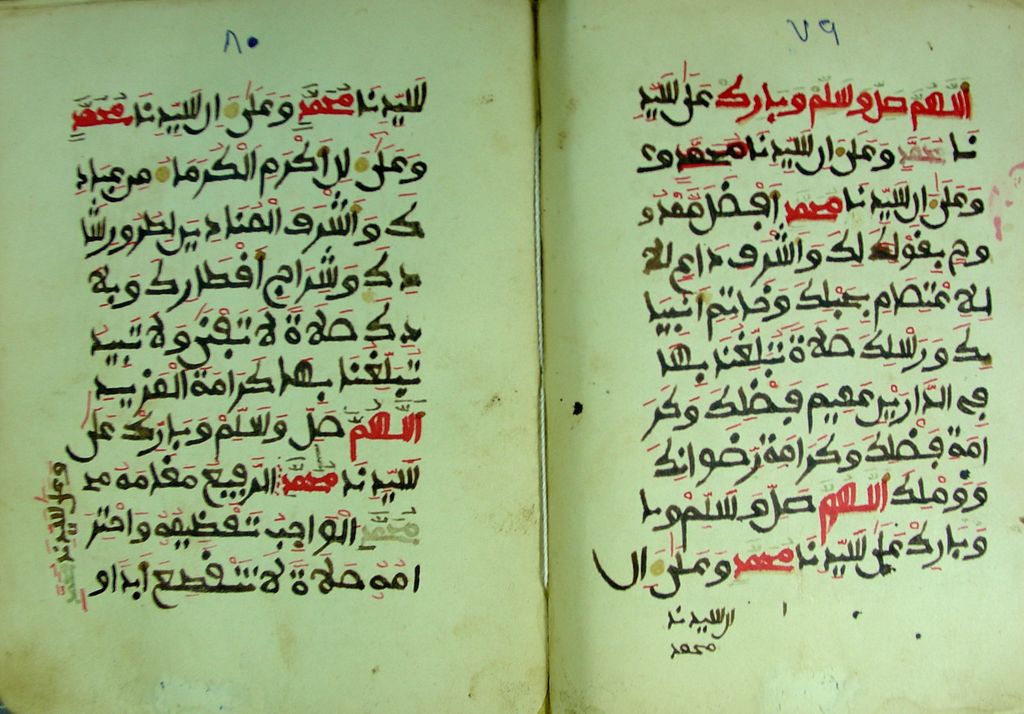 ٧٩
اللهم صل وسلم وبارك على سيد
نا محمد وعلى ال سيدنا محمد و
وعلى ال سيدنا محمد افضل ممد
وح بقولك واشرف داع
للاعتصام بحبلك وخاتم انبيا
يك ورسلك صلاة تبلغنا بها
في الدارين عميم فضلك وكر
امة فضلك وكرامة رضوانك
ووصلك اللهم صل وسلم و
وبارك على سيدنا محمد وعلى ال
ال سيدنا
محمد
٨٠
سيدنا محمد وعلى ال سيدنا محمد
وعلى ال اكرم الكرما من عباد
ك واشرف المنادين لطرق رشا
دك وسراج اقطارك وبلا
دك صلاة لا تفنى ولا تبيد
تبلغنا بها كرامة المزيد
اللهم صل وسلم وبارك على
سيدنا محمد الرفيع مقامه
محمد الواجب تعظيمه واحتر
امه صلاة لا تنقطع ابدا و
وعلى سيدنا محمد